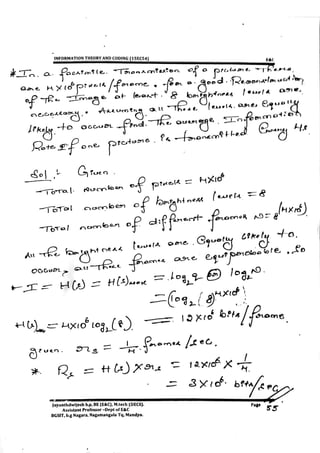 INFORMATION THEORY AND CODING (15EC54) E&C
* In a facsimile Transmission of a picture There
are 4x10⁶ pixels/frame. For a good Reconstruction
of The Image at least 8 brightness levels are
necessary. Assuming all These levels are Equally
likely to occur find The average Information
Rate if one picture is transmitted Every 4s
Sol:- Given
Total Number of pixels = 4x10⁶
Total number of brightness levels = 8
Total number of different frames N= 8^(4x10⁶)
All The brightness levels are Equally likely to
occur, all These frames are equiprobable, so
I = H(s) = H(s)max = log₂q log N.
= log₂(8^4x10⁶)
H(s) = 4x10⁶ log₂(8) = 12x10⁶ bits/frame.
Given. rs = 1/4 frames/sec.
* Rs = H(s) x rs = 12x10⁶ x 1/4.
= 3x10⁶ bits/sec
Jayanthdwijesh h.p, BE (E&C), M.tech (DECS).
Assistant Professor -Dept of E&C
BGSIT, b.g Nagara, Nagamangala Tq, Mandya.
Page 55